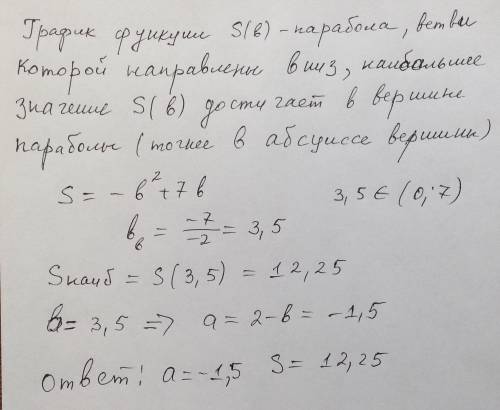 График функции S(b) - парабола, ветви
которой направлены вниз, наибольшее
значение S(b) достигает в вершине
параболы (точнее в абсциссе вершины)
S = - b² + 7b 3,5 ∈ (0; 7)
b_в = -7/-2 = 3,5
Sнаиб = S(3,5) = 12,25
b = 3,5 => a = 2 - b = -1,5
ответ: a = -1,5 S = 12,25